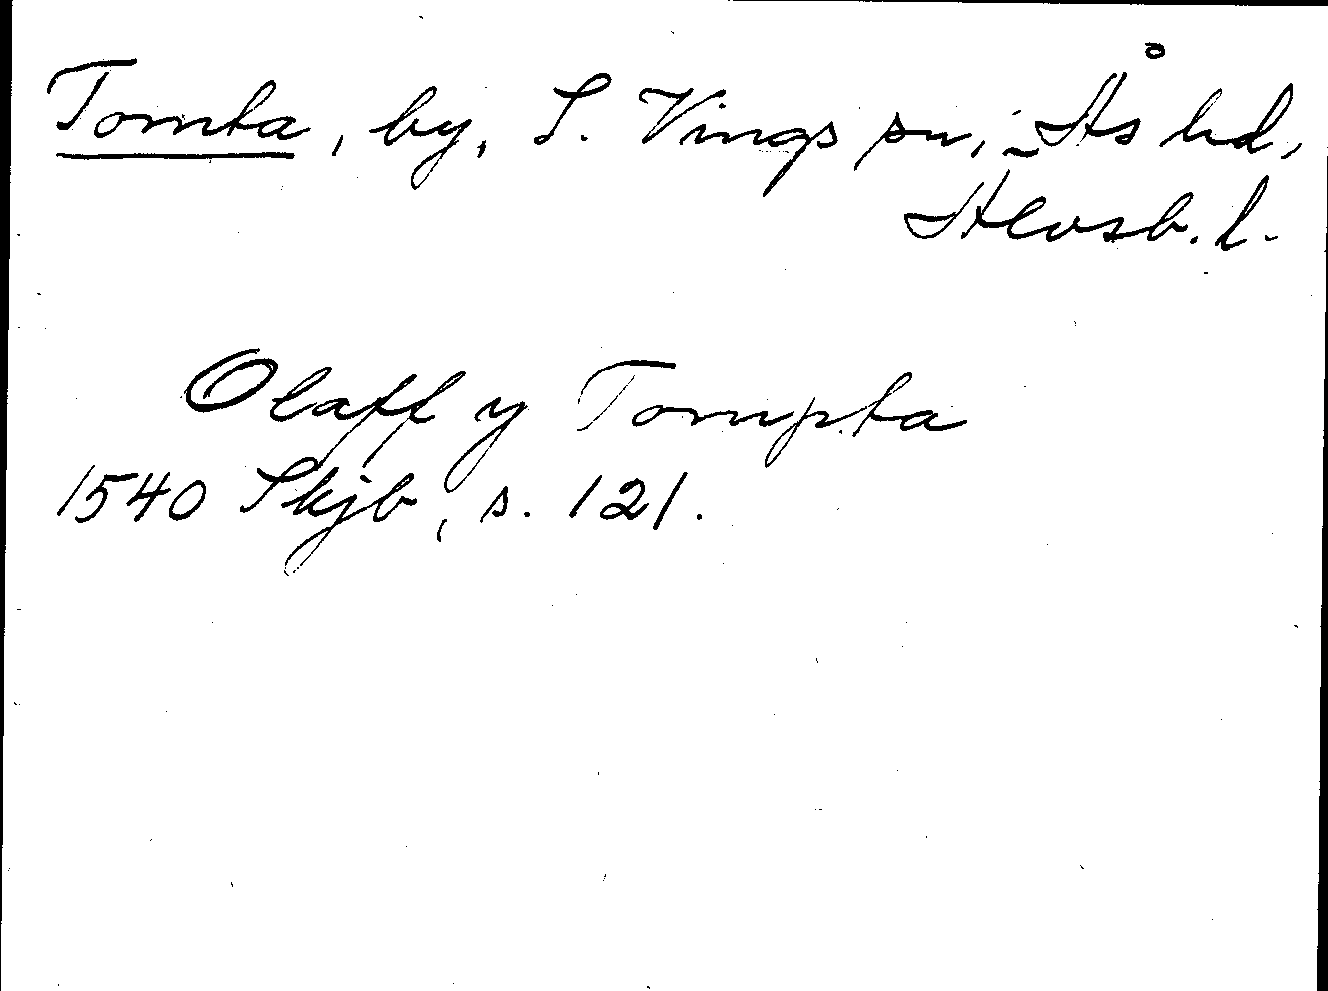 Tomta, by, S. Vings sn, Ås hd,
Älvsb. l.
Olaff y Tompta
1540 Skjb, s. 121.